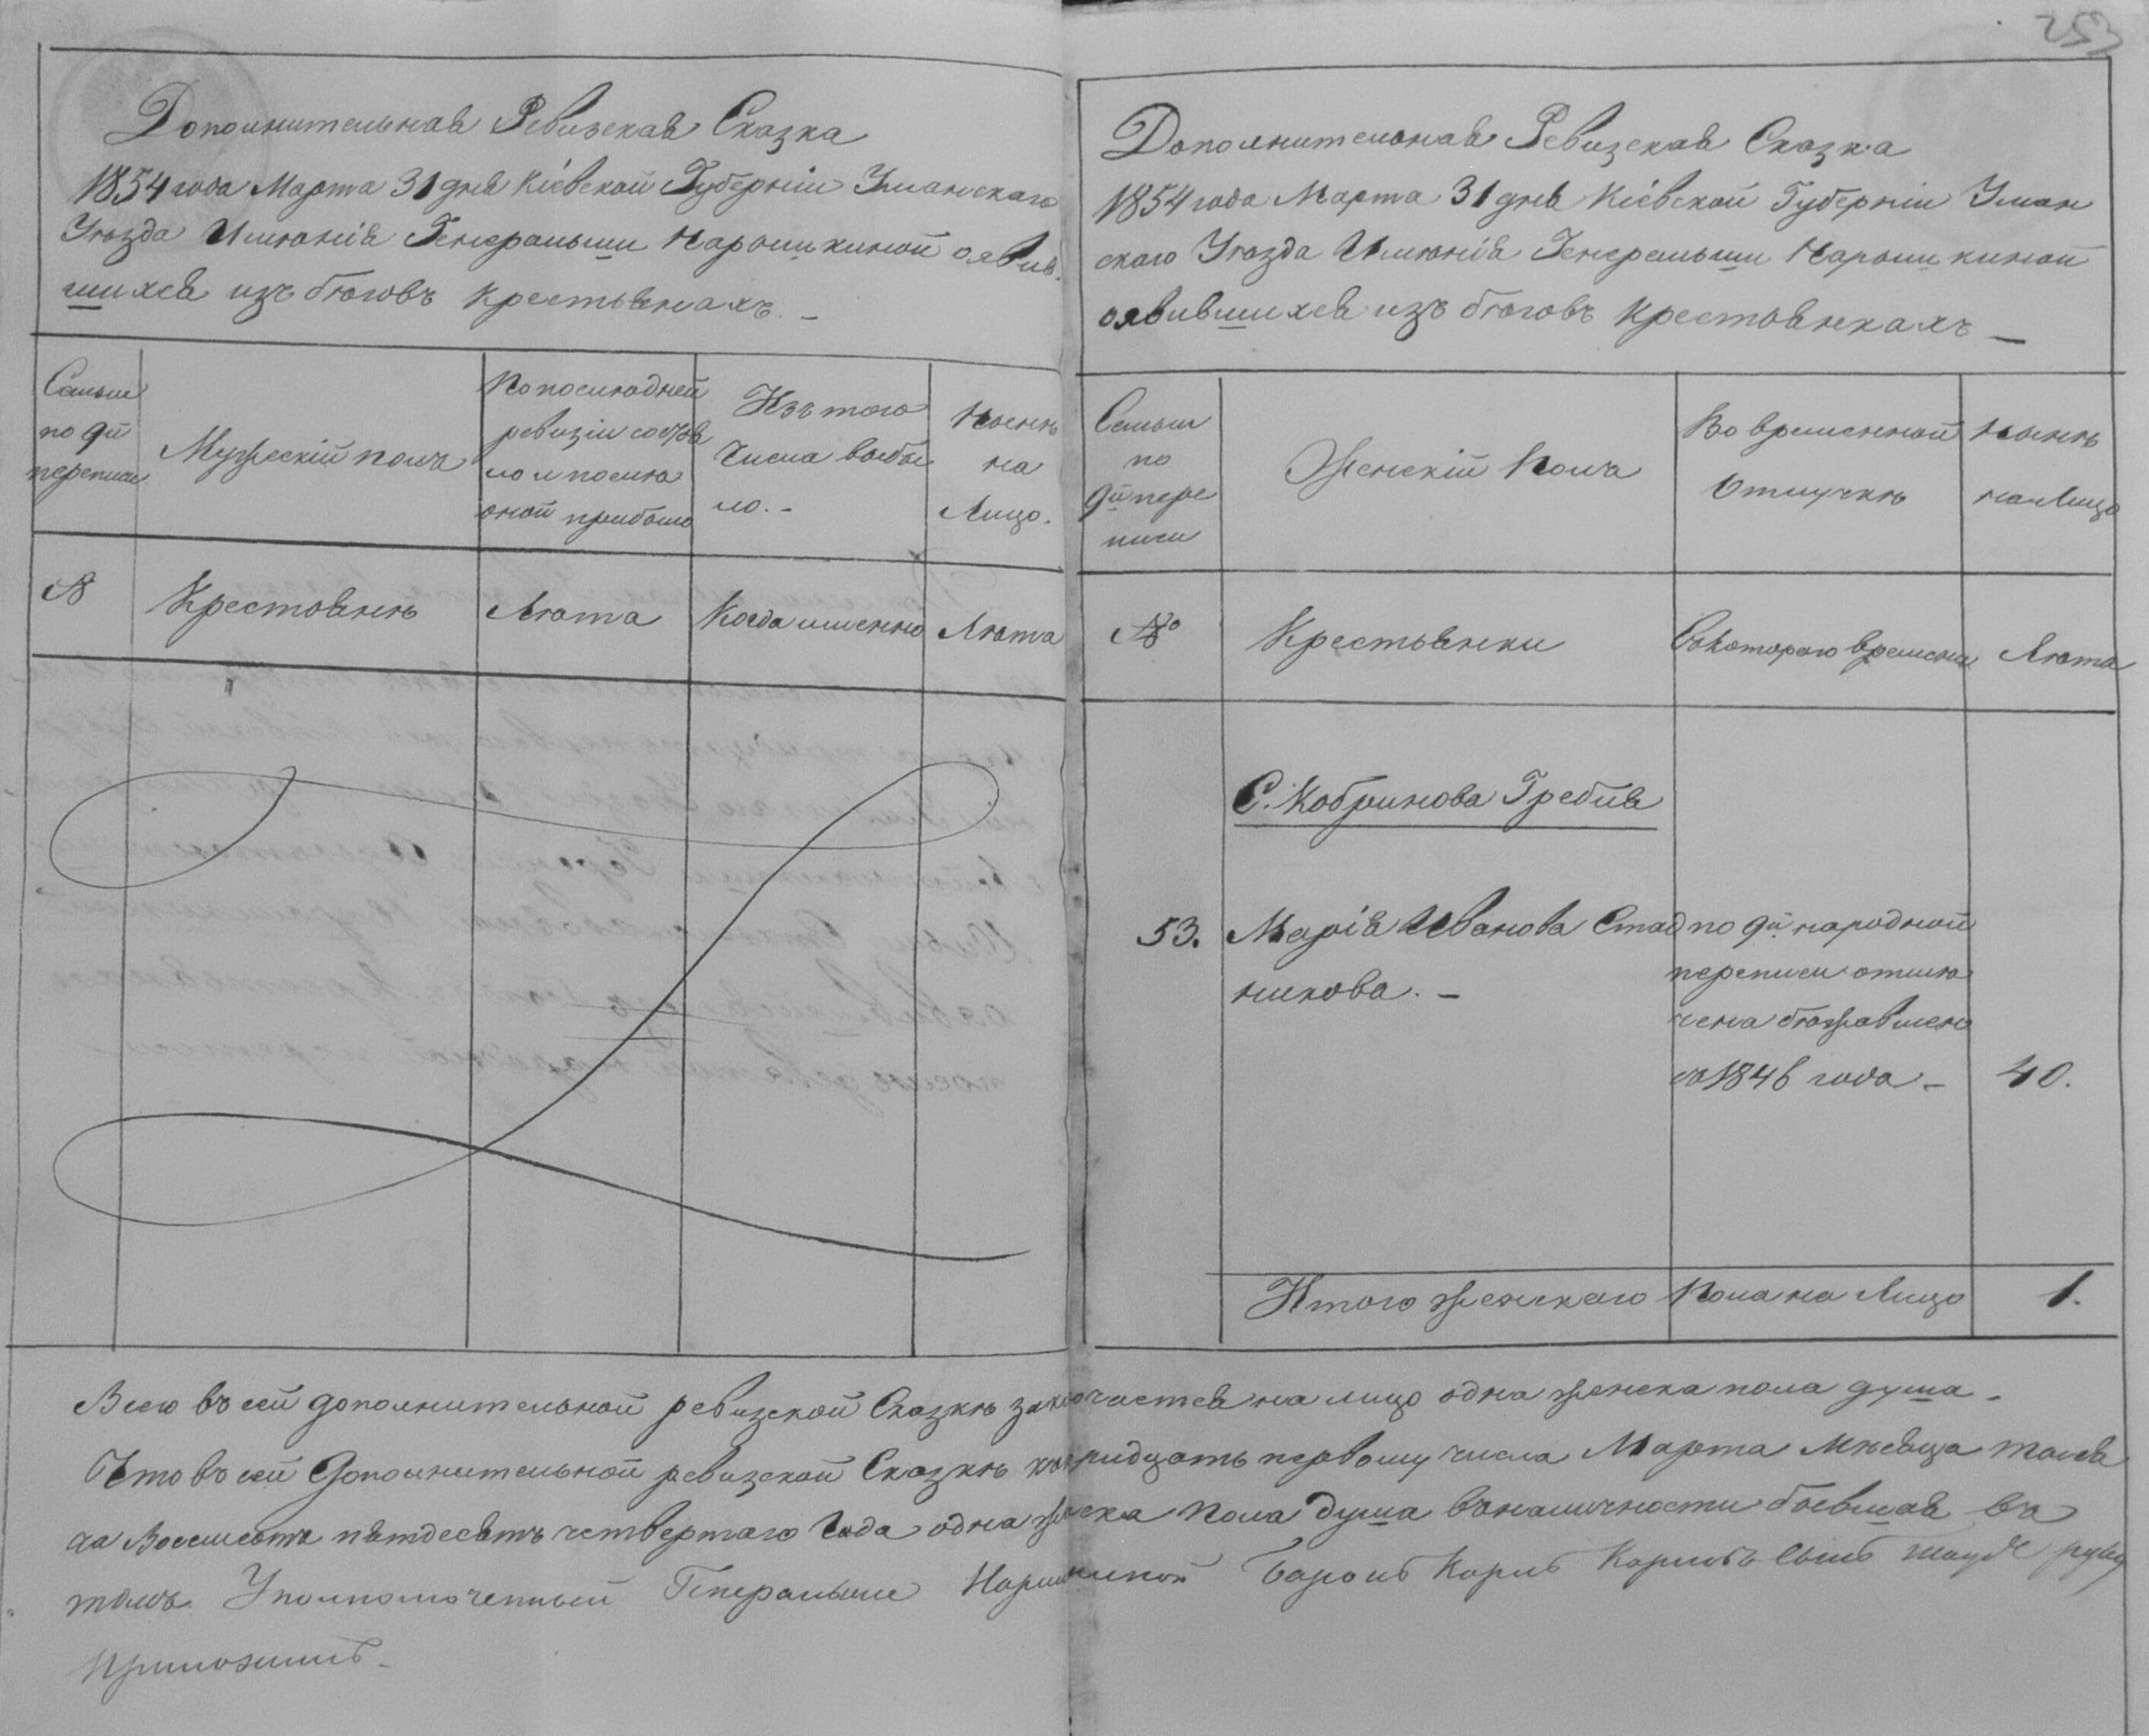 Дополнительная Ревизская Сказка
1854 года Марта 31 дня Кіевской Губерніи Уманскаго
Уѣзда Имѣнія Генеральши Нарышкиной о явив
шихся изъ бѣговъ крестьянахъ. –
Семьи
по 9й
переписи
Мужескій полъ
По послѣдней
ревизіи состоя
ло и послѣ
оной прибыло
Изъ того
числа выбы
ло. –
Нынѣ
на
Лицо.
№
Крестьяне
Лѣта
Когда именно
Лѣта
253
Дополнительная Ревизская Сказка
1854 года Марта 31 дня Кіевской Губерніи Уман
скаго Уѣзда Имѣнія Генеральши Нарышкиной
о явившихся изъ бѣговъ крестьянкахъ –
Семьи
по
9й пере
писи
Женскій полъ
Во временной
отлучкѣ
Нынѣ
на Лицо
№
Крестьянки
Съ котораго времени
Лѣта
С. Кобринова Гребля
53. Марія Иванова Стад
никова. –
по 9й народной
переписи отмѣ
чена бѣжавшею
съ 1846 года –
40.
Итого женскаго пола на Лицо 1.
Всего въ сей дополнительной ревизской Сказкѣ заключается на лицо одна женска пола душа –
Что въ сей Дополнительной ревизской Сказкѣ къ тридцать первому числа Марта мѣсяца тыся
ча восемьсотъ пятдесятъ четвертаго Года одна женска пола душа въ наличности бывшая въ
томъ Уполномоченный Генеральши Нарышкиной Баронъ Карлъ Карловъ Сынъ руку
приложилъ –